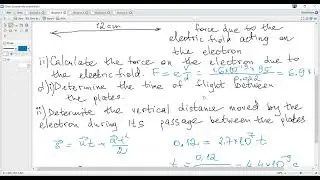 12 cm
force due to the
electric field acting on
the electron
ii) Calculate the force on the electron due to
the electric field. F = e V/d = 0.022 = 6.9
d) i) Determine the time of flight between
the plates
ii) Determine the vertical distance moved by the
electron during its passage between the plates
0,12 = 2.7×10⁷t
t = 0.12